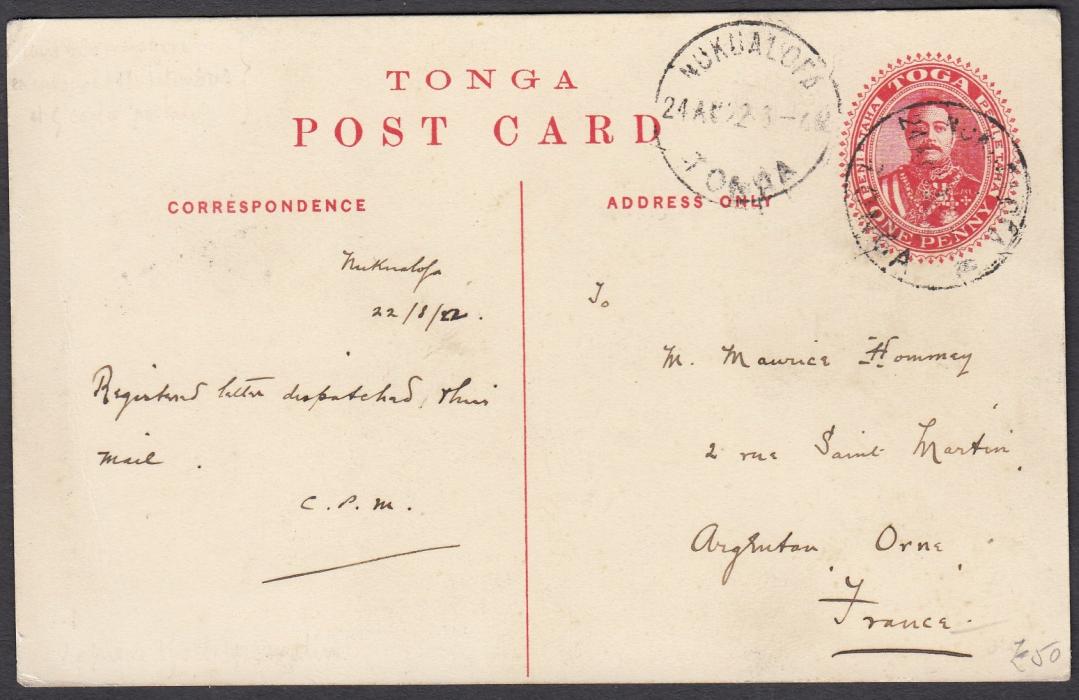 TONGA
POST CARD
NUKUALOFA
24 AU 22
TONGA
TOGA
PENI E TAHA
PENI E TAHA
ONE PENNY
CORRESPONDENCE
ADDRESS ONLY
Nukualofa
22/8/22.
Registered letter dispatched this
mail.
C. P. M.
To
M. Maurice Hommey
2 rue Saint Martin
Argentan Orne
France.
£50